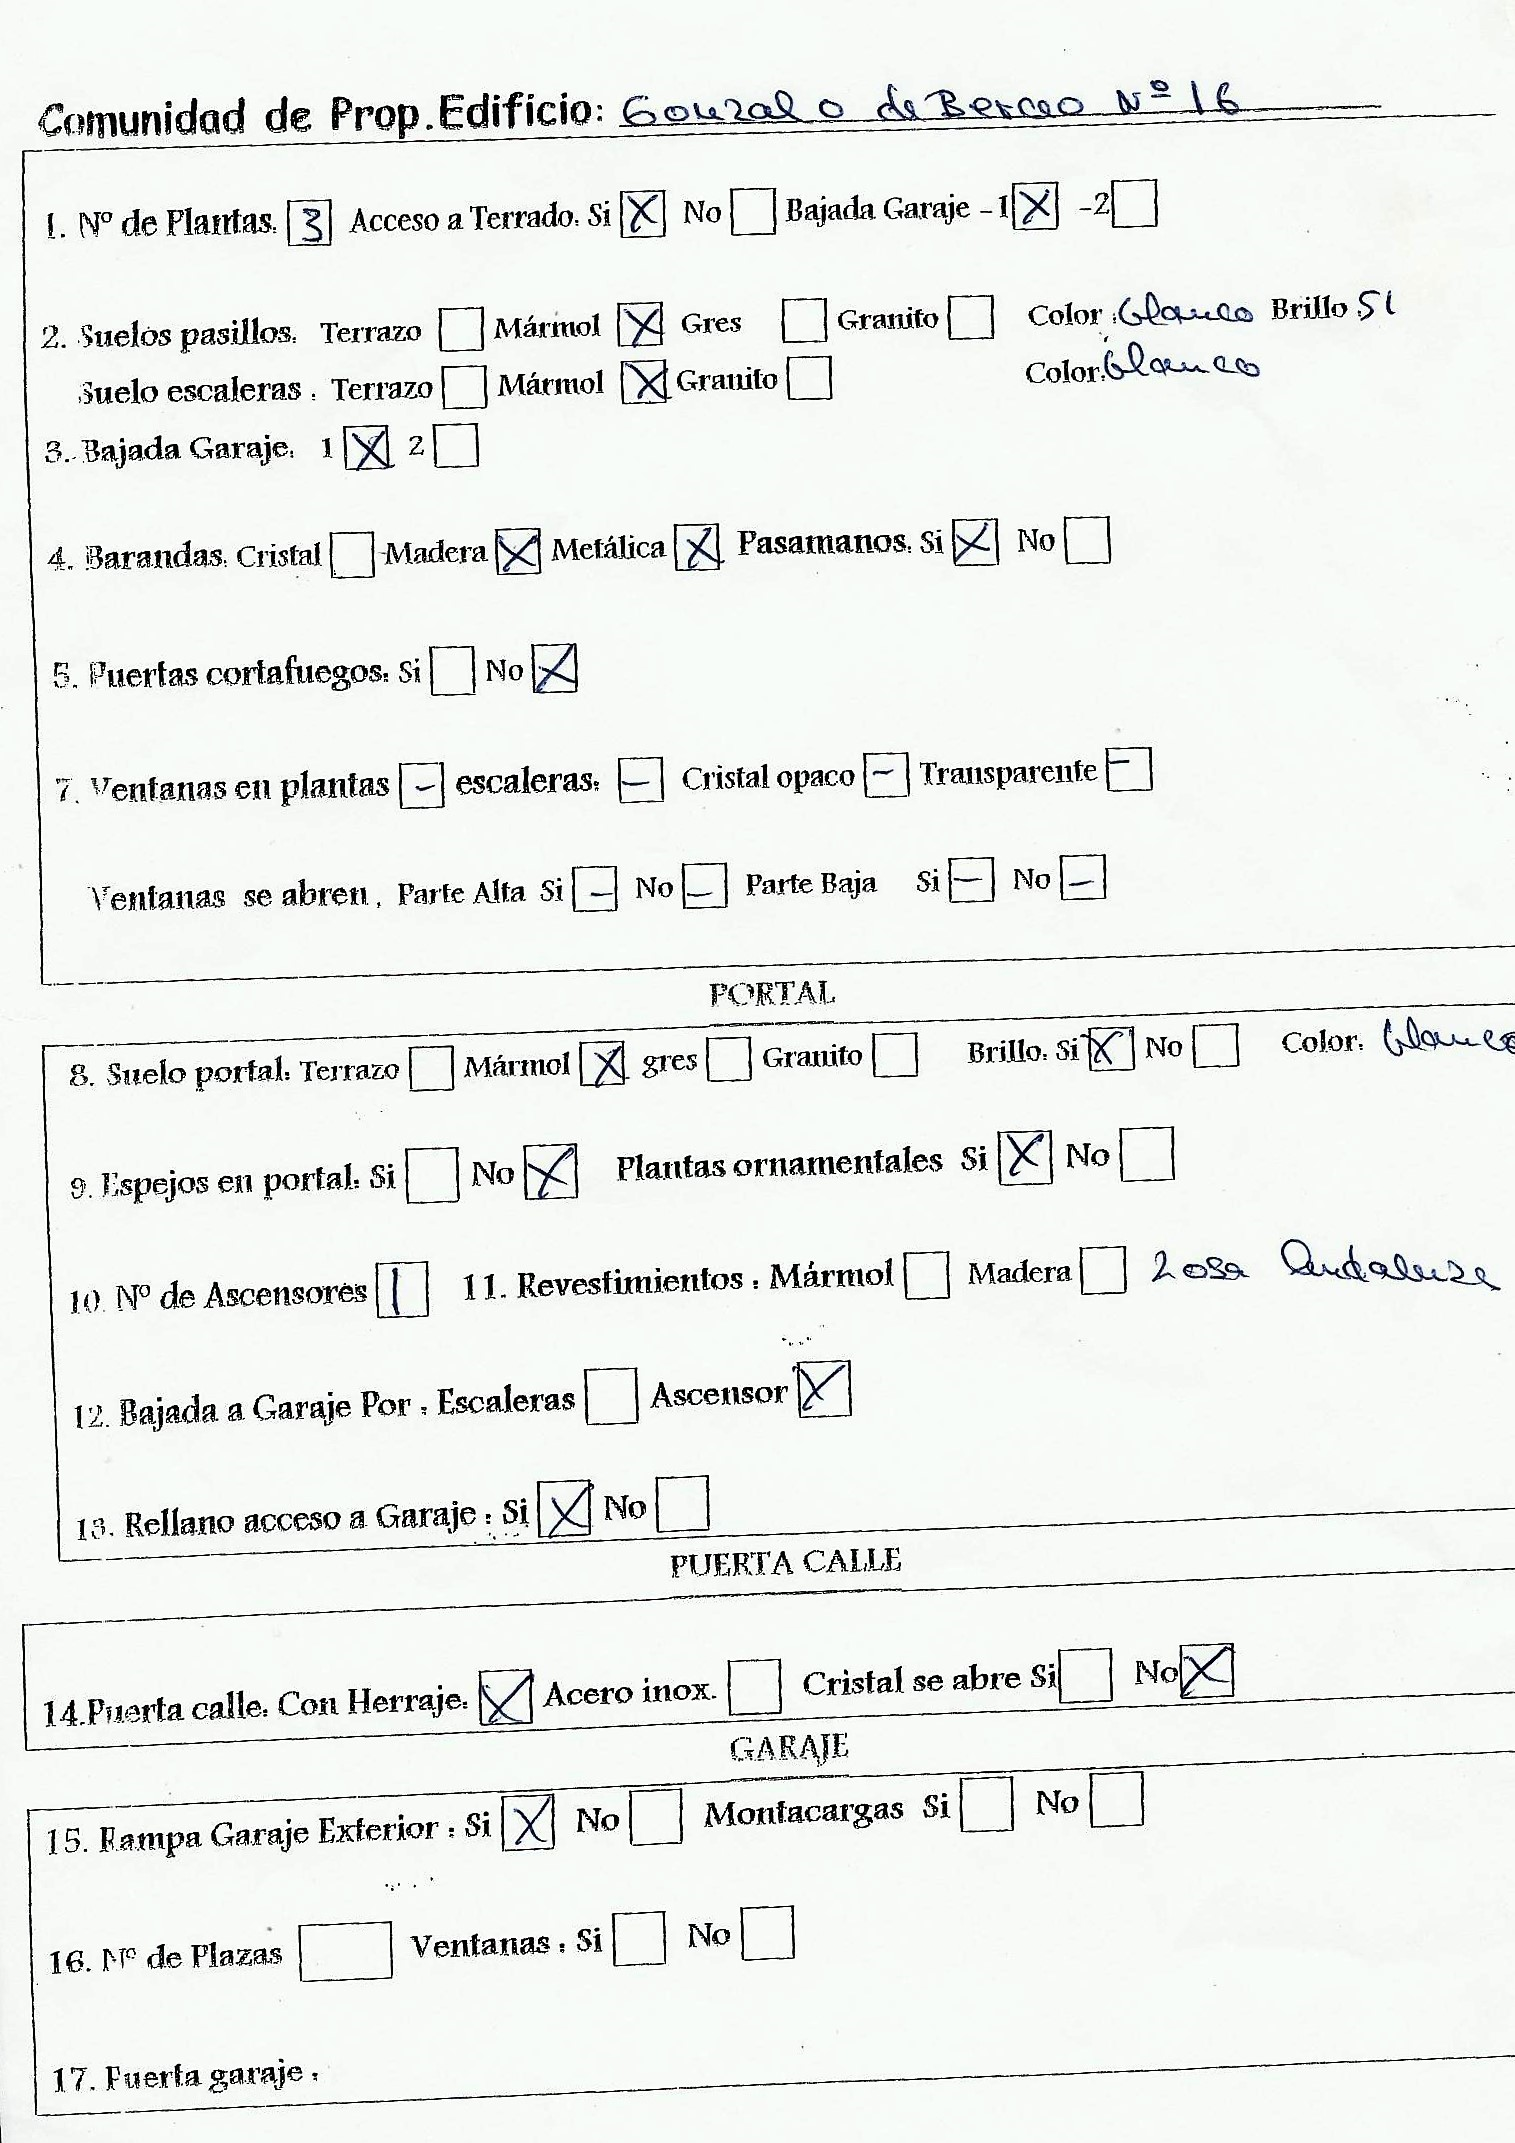 Comunidad de Prop. Edificio: Gonzalo de Berceo Nº 16
1. Nº de Plantas: 3 Acceso a Terrado: Si X No Bajada Garaje -1 X -2
2. Suelos pasillos: Terrazo Mármol X Gres Granito Color: blanco Brillo SI
Suelo escaleras: Terrazo Mármol X Granito Color: blanco
3. Bajada Garaje: 1 X 2
4. Barandas: Cristal Madera X Metálica X Pasamanos: Si X No
5. Puertas cortafuegos: Si No X
7. Ventanas en plantas - escaleras: - Cristal opaco - Transparente -
Ventanas se abren, Parte Alta Si - No - Parte Baja Si - No -
PORTAL
8. Suelo portal: Terrazo Mármol X gres Granito Brillo: Si X No Color: blanco
9. Espejos en portal: Si No X Plantas ornamentales Si X No
10. Nº de Ascensores 1 11. Revestimientos: Mármol Madera Losa Andaluza
12. Bajada a Garaje Por: Escaleras Ascensor X
13. Rellano acceso a Garaje: Si X No
PUERTA CALLE
14. Puerta calle: Con Herraje: X Acero inox. Cristal se abre Si No X
GARAJE
15. Rampa Garaje Exterior: Si X No Montacargas Si No
16. Nº de Plazas Ventanas: Si No
17. Puerta garaje: